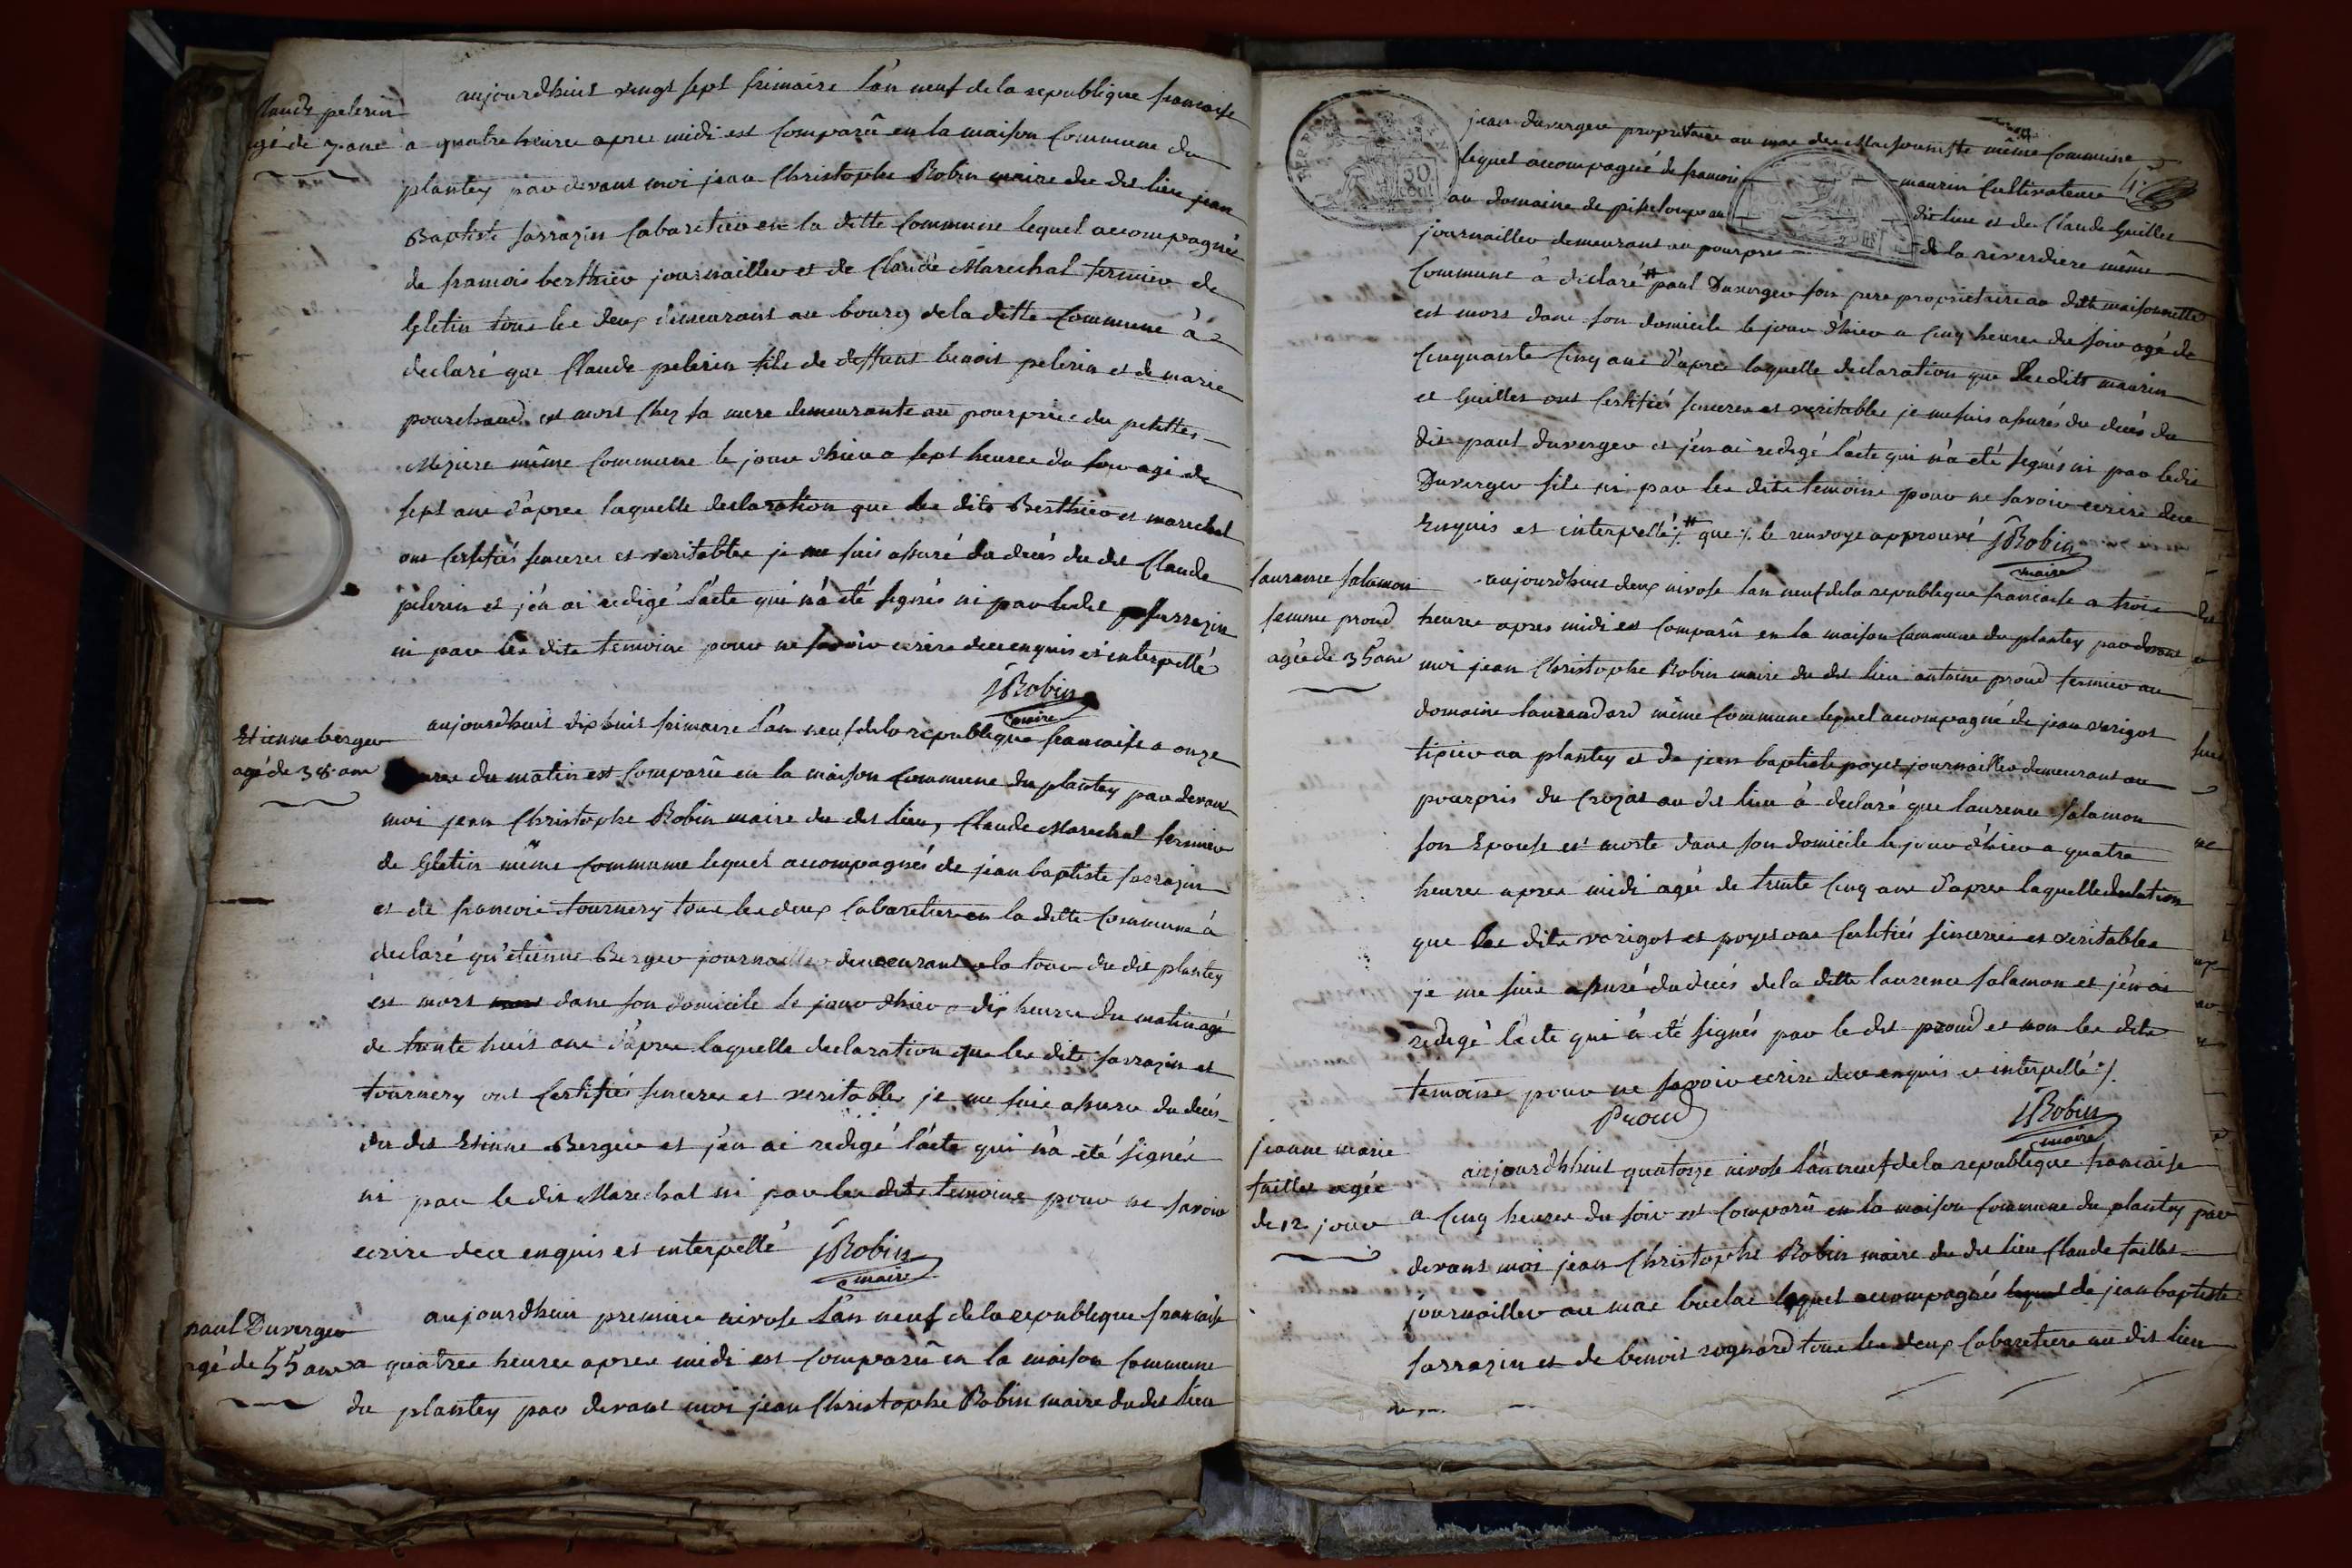 Claude pelerin
agé de 7 ans
aujourdhuit vingt sept frimaire l'an neuf de la republique francaise
a quatre heures apres midi est Comparû en la maison Commune du
plantey par devant moi jean Christophe Robin maire du dit lieu jean
Baptiste sarrazin Cabaretier en la ditte Commune lequel accompagné
de francois berthier journaillier et de Claude Marechal fermier de
Gletin tous les deux demeurant au bourg de la ditte Commune à
declaré que Claude pelerin fils de deffunt benoit pelerin et de marie
pourchaud est mort Chez sa mere demeurante au pourpris du petittes
Meziere même Commune le jour d'hier a sept heures du soir agé de
sept ans d'apres laquelle declaration que les dits Berthier et marechal
ont Certifiés sinceres et veritables je me suis assuré du decés du dit Claude
pelerin et j'en ai redigé l'acte qui n'a été signés ni par ledit sarrazin
ni par les dits temoins pour ne savoir ecrire de ce enquis et interpellé
JRobin
maire
Etienne berger
agé de 38 ans
aujourdhuit dix huit frimaire l'an neuf de la republique francaise a onze
heures du matin est Comparû en la maison Commune du plantey par devant
moi jean Christophe Robin maire du dit lieu, Claude Marechal fermier
de Gletin même Commune lequel accompagnés de jean baptiste sarrazin
et de francois tournery tous les deux Cabaretiers en la ditte Commune à
declaré qu'etienne Berger journaillier demeurant a la tour du dit plantey
est mort dans son domicile le jour d'hier a dix heures du matin agé
de trente huit ans d'apres laquelle declaration que les dits sarrazin et
tournery ont Certifiés sinceres et veritables je me suis assuré du decés
du dit Etienne Berger et j'en ai redigé l'acte qui n'a été signés
ni par le dit Marechal ni par les dits temoins pour ne savoir
ecrire de ce enquis et interpellé JRobin
maire
paul Duverger
agé de 55 ans
aujourdhuit premier nivose l'an neuf de la republique francaise
a quatres heures apres midi est Comparû en la maison Commune
du plantey par devant moi jean Christophe Robin maire du dit lieu
jean duverger propriétaire au mas des Maisonnette même Commune
lequel accompagné de francois maurin Cultivateur
au domaine de dit lieu et de Claude Guillet
journaillier demeurant au pourpris de la reverdiere même
Commune à declaré # paul Duverger son pere propriétaire au dit maisonnette
est mort dans son domicile le jour d'hier a Cinq heures du soir agé de
Cinquante Cinq ans d'apres laquelle declaration que les dits maurin
et Guillet ont Certifié sinceres et veritables je me suis assurés du decés du
dit paul duverger et j'en ai redigé l'acte qui n'a été signés ni par le dit
Duverger fils ni par les dits temoins pour ne savoir ecrire de ce
Enquis et interpellé # que le renvoye approuvé JRobin
maire
laurance salamon
femme proud
agée de 35 ans
aujourdhuit deux nivose lan neuf de la republique francaise a trois
heures apres midi est Comparû en la maison Commune du plantey par devant
moi jean Christophe Robin maire du dit lieu antoine proud fermier au
domaine même Commune lequel accompagné de jean varigot
tixier au plantey et de jean baptiste poyet journaillier demeurant au
pourpris du Crozat au dit lieu à declaré que laurence salamon
son Epouse est morte dans son domicile le jour d'hier a quatre
heures apres midi agée de trente Cinq ans d'apres laquelle declation
que les dits varigot et poyet ont Certifiés sinceres et veritables
je me suis assuré du decés de la ditte laurence salamon et j'en ai
redigé l'acte qui à été signés par le dit proud et non les dits
temoins pour ne savoir ecrire de ce enquis et interpellé
Proud
JRobin
maire
jeanne marie
taillet agée
de 12 jour
aujourdhhuit quatorze nivose l'an neuf de la republique francaise
a Cinq heures du soir est Comparû en la maison Commune du plantey par
devant moi jean Christophe Robin maire du dit lieu Claude taillet
journaillier au mas buclas lequel accompagnés de jean baptiste
sarrazin et de benoit rognard tous les deux Cabaretiers au dit lieu